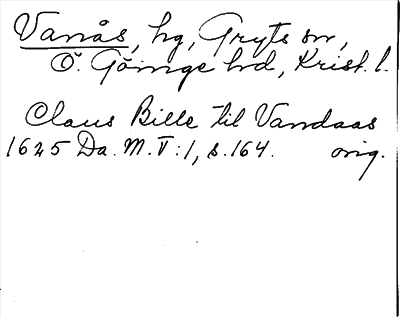 Vanås, hg, Gryts sn,
Ö. Göinge hd, Krist. l.
Claus Bille til Vandaas
1625 Da. M. V:1, s. 164. orig.